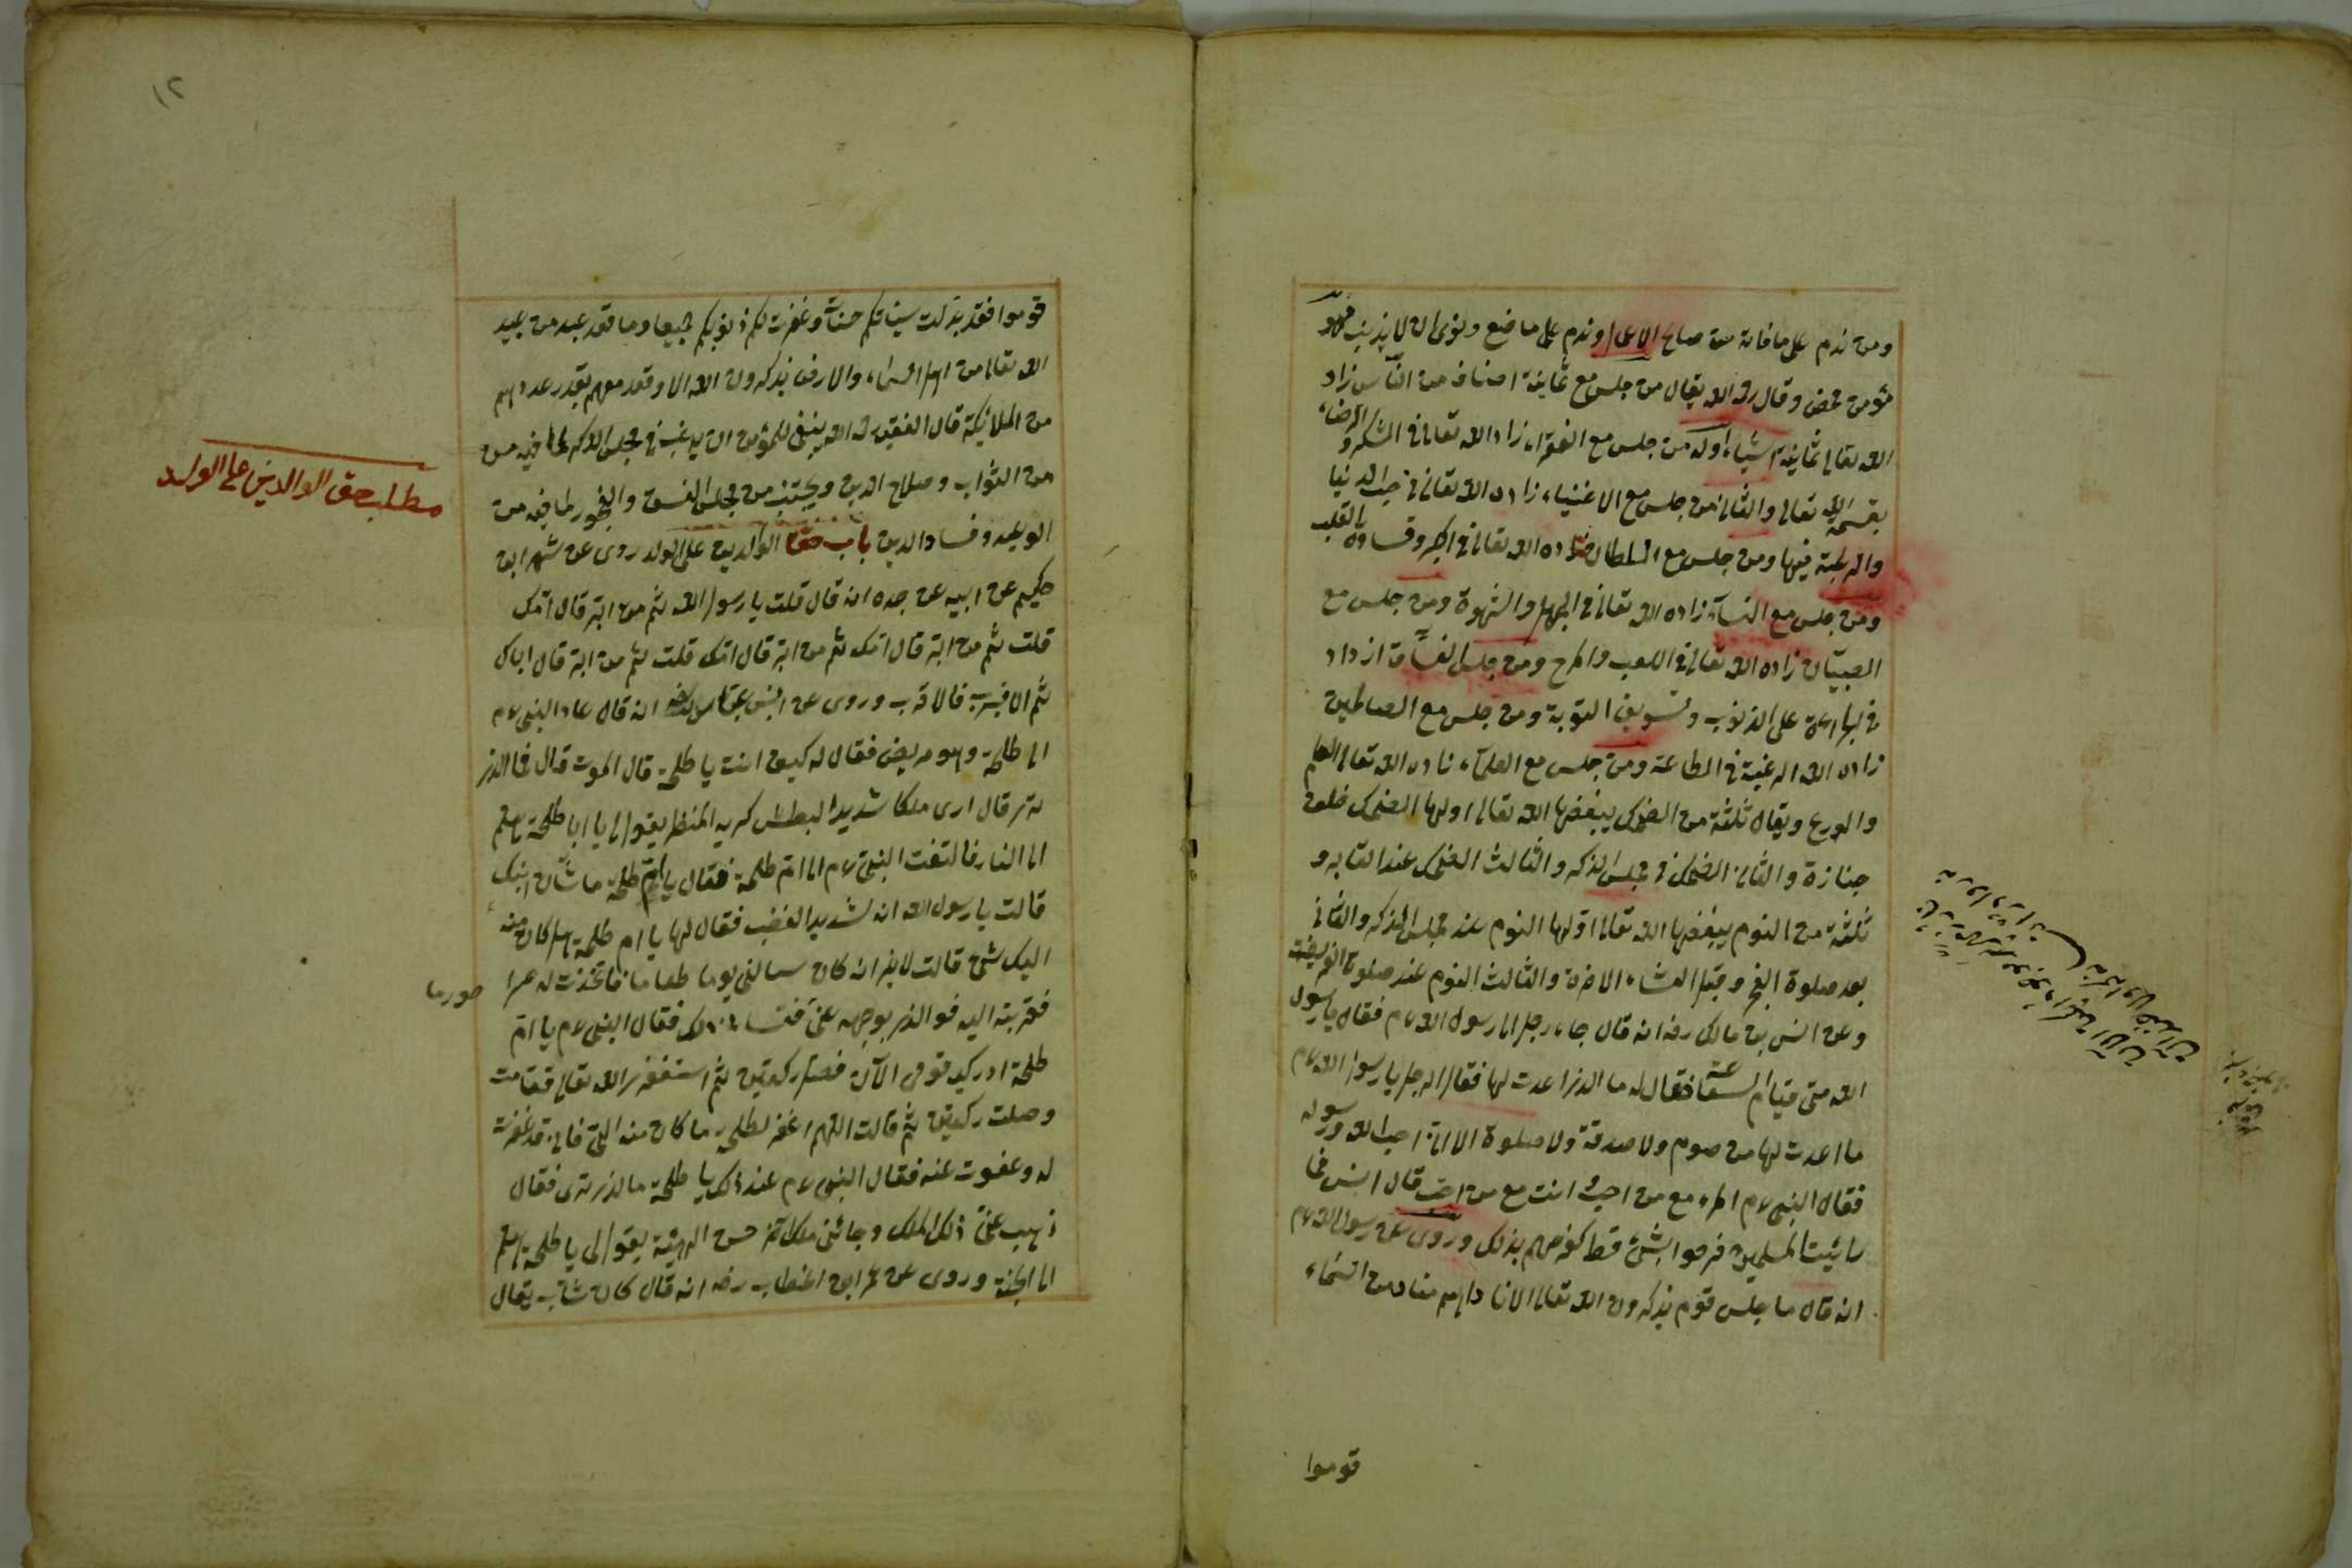 ومن ندم على ما فاته من صالح الاعمال وندم على ما ضع ونوى ان لا يذنب فهو
مؤمن محض وقال رحمه الله يقال من جلس مع ثمانية اصناف من الناس زاد
الله تعالى ثمانية اشياء اوله من جلس مع الفقراء زاد الله تعالى فى الشكر والرضاء
بقسمة الله تعالى والثانى من جلس مع الاغنياء زاده الله تعالى فى حب الدنيا
والرغبة فيها ومن جلس مع السلطان زاده الله تعالى فى الكبر وقساوة القلب
ومن جلس مع النساء زاده الله تعالى فى الجهل والشهوة ومن جلس مع
الصبيان زاده الله تعالى فى اللعب والمرح ومن جلس الفساق ازداد
فى الجراءة على الذنوب وتسويف التوبة ومن جلس مع الصالحين
زاده الله الرغبة فى الطاعة ومن جلس مع العلماء زاده الله تعالى العلم
والورع ويقال ثلثة من الضحك يبغضها الله تعالى اولها الضحك خلف
جنازة والثانى الضحك فى مجلس الذكر والثالث الضحك عند القابر و
ثلثة من النوم يبغضها الله تعالى اولها النوم عند مجلس الذكر والثانى
بعد صلوة الفجر وقبل العشاء الاخرة والثالث النوم عند صلوة الفريضة
وعن انس بن مالك رضه انه قال جاء رجل الى رسول الله عم فقال يا رسول
الله متى قيام الساعة فقال له ما الذى اعدت لها فقال الرجل يا رسول الله عم
ما اعدت لها من صوم ولا صدقة ولا صلوة الا انى احب الله ورسوله
فقال النبى عم المرء مع من احب انت مع من احب قال انس فما
رائيت المسلمين فرحوا بشئ قط كفرحهم بذلك وروى عن رسول الله عم
انه قال ما جلس قوم يذكرون الله تعالى الا نا داهم مناد من السماء
قوموا
١٢
قوموا فقد بدلت سيئاتكم حسنات وغفرت لكم ذنوبكم جميعا وما قعد عبد من عبيد
الله تعالى من اهل السماء والارض يذكرون الله الا وقعد معهم بقدر عددهم
من الملائكة قال الفقيه رحمه الله ينبغى للمؤمن ان يرغب فى مجلس الذكر لما فيه من
من الثواب وصلاح الدين ويجتنب من مجلس الفسق والفجور لما فيه من
الوعيد وفساد الدين باب حق الوالدين على الولد روى عن شهر ابن
حكيم عن ابيه عن جده انه قال قلت يا رسول الله ثم من ابر قال امك
قلت ثم من ابر قال امك ثم من ابر قال امك قلت ثم من ابر قال اباك
ثم الاقرب فالاقرب وروى عن ابن عباس رضه انه قال عاد النبى عم
الى طلحة وهو مريض فقال له كيف انت يا طلحة قال الموت قال فما الذى
ترى قال ارى ملكا شديد البطش كريه المنظر يقول لى يا ابا طلحة هلم
الى النار فالتفت النبى عم الى ام طلحة فقال يا ام طلحة ما شأن ابنك
قالت يا رسول الله انه لشديد الغضب فقال لها يا ام طلحة هل كان منه
اليك شئ قالت لا غير انه كان سالنى يوما طعاما فاتخذت له
فقربته اليه فقال النبى عم يا ام
طلحة ادركيه قومى الآن فصلى ركعتين ثم استغفرى الله تعالى فقامت
وصلت ركعتين ثم قالت اللهم اغفر لطلحة ما كان منه الى فانى قد غفرت
له وعفوت عنه فقال النبى عم عند ذلك يا طلحة ما الذى ترى فقال
ذهب عنى ذلك الملك وجائنى ملك آخر حسن الهيئة يقول لى يا طلحة هلم
الى الجنة وروى عن عمر ابن الخطاب رضه انه قال كان شاب يقال
مطلب حق الوالدين على الولد